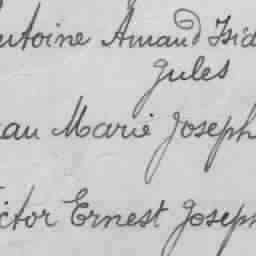 utoine Amand Isid
Jules
ean Marie Joseph
ictor Ernest Joseph